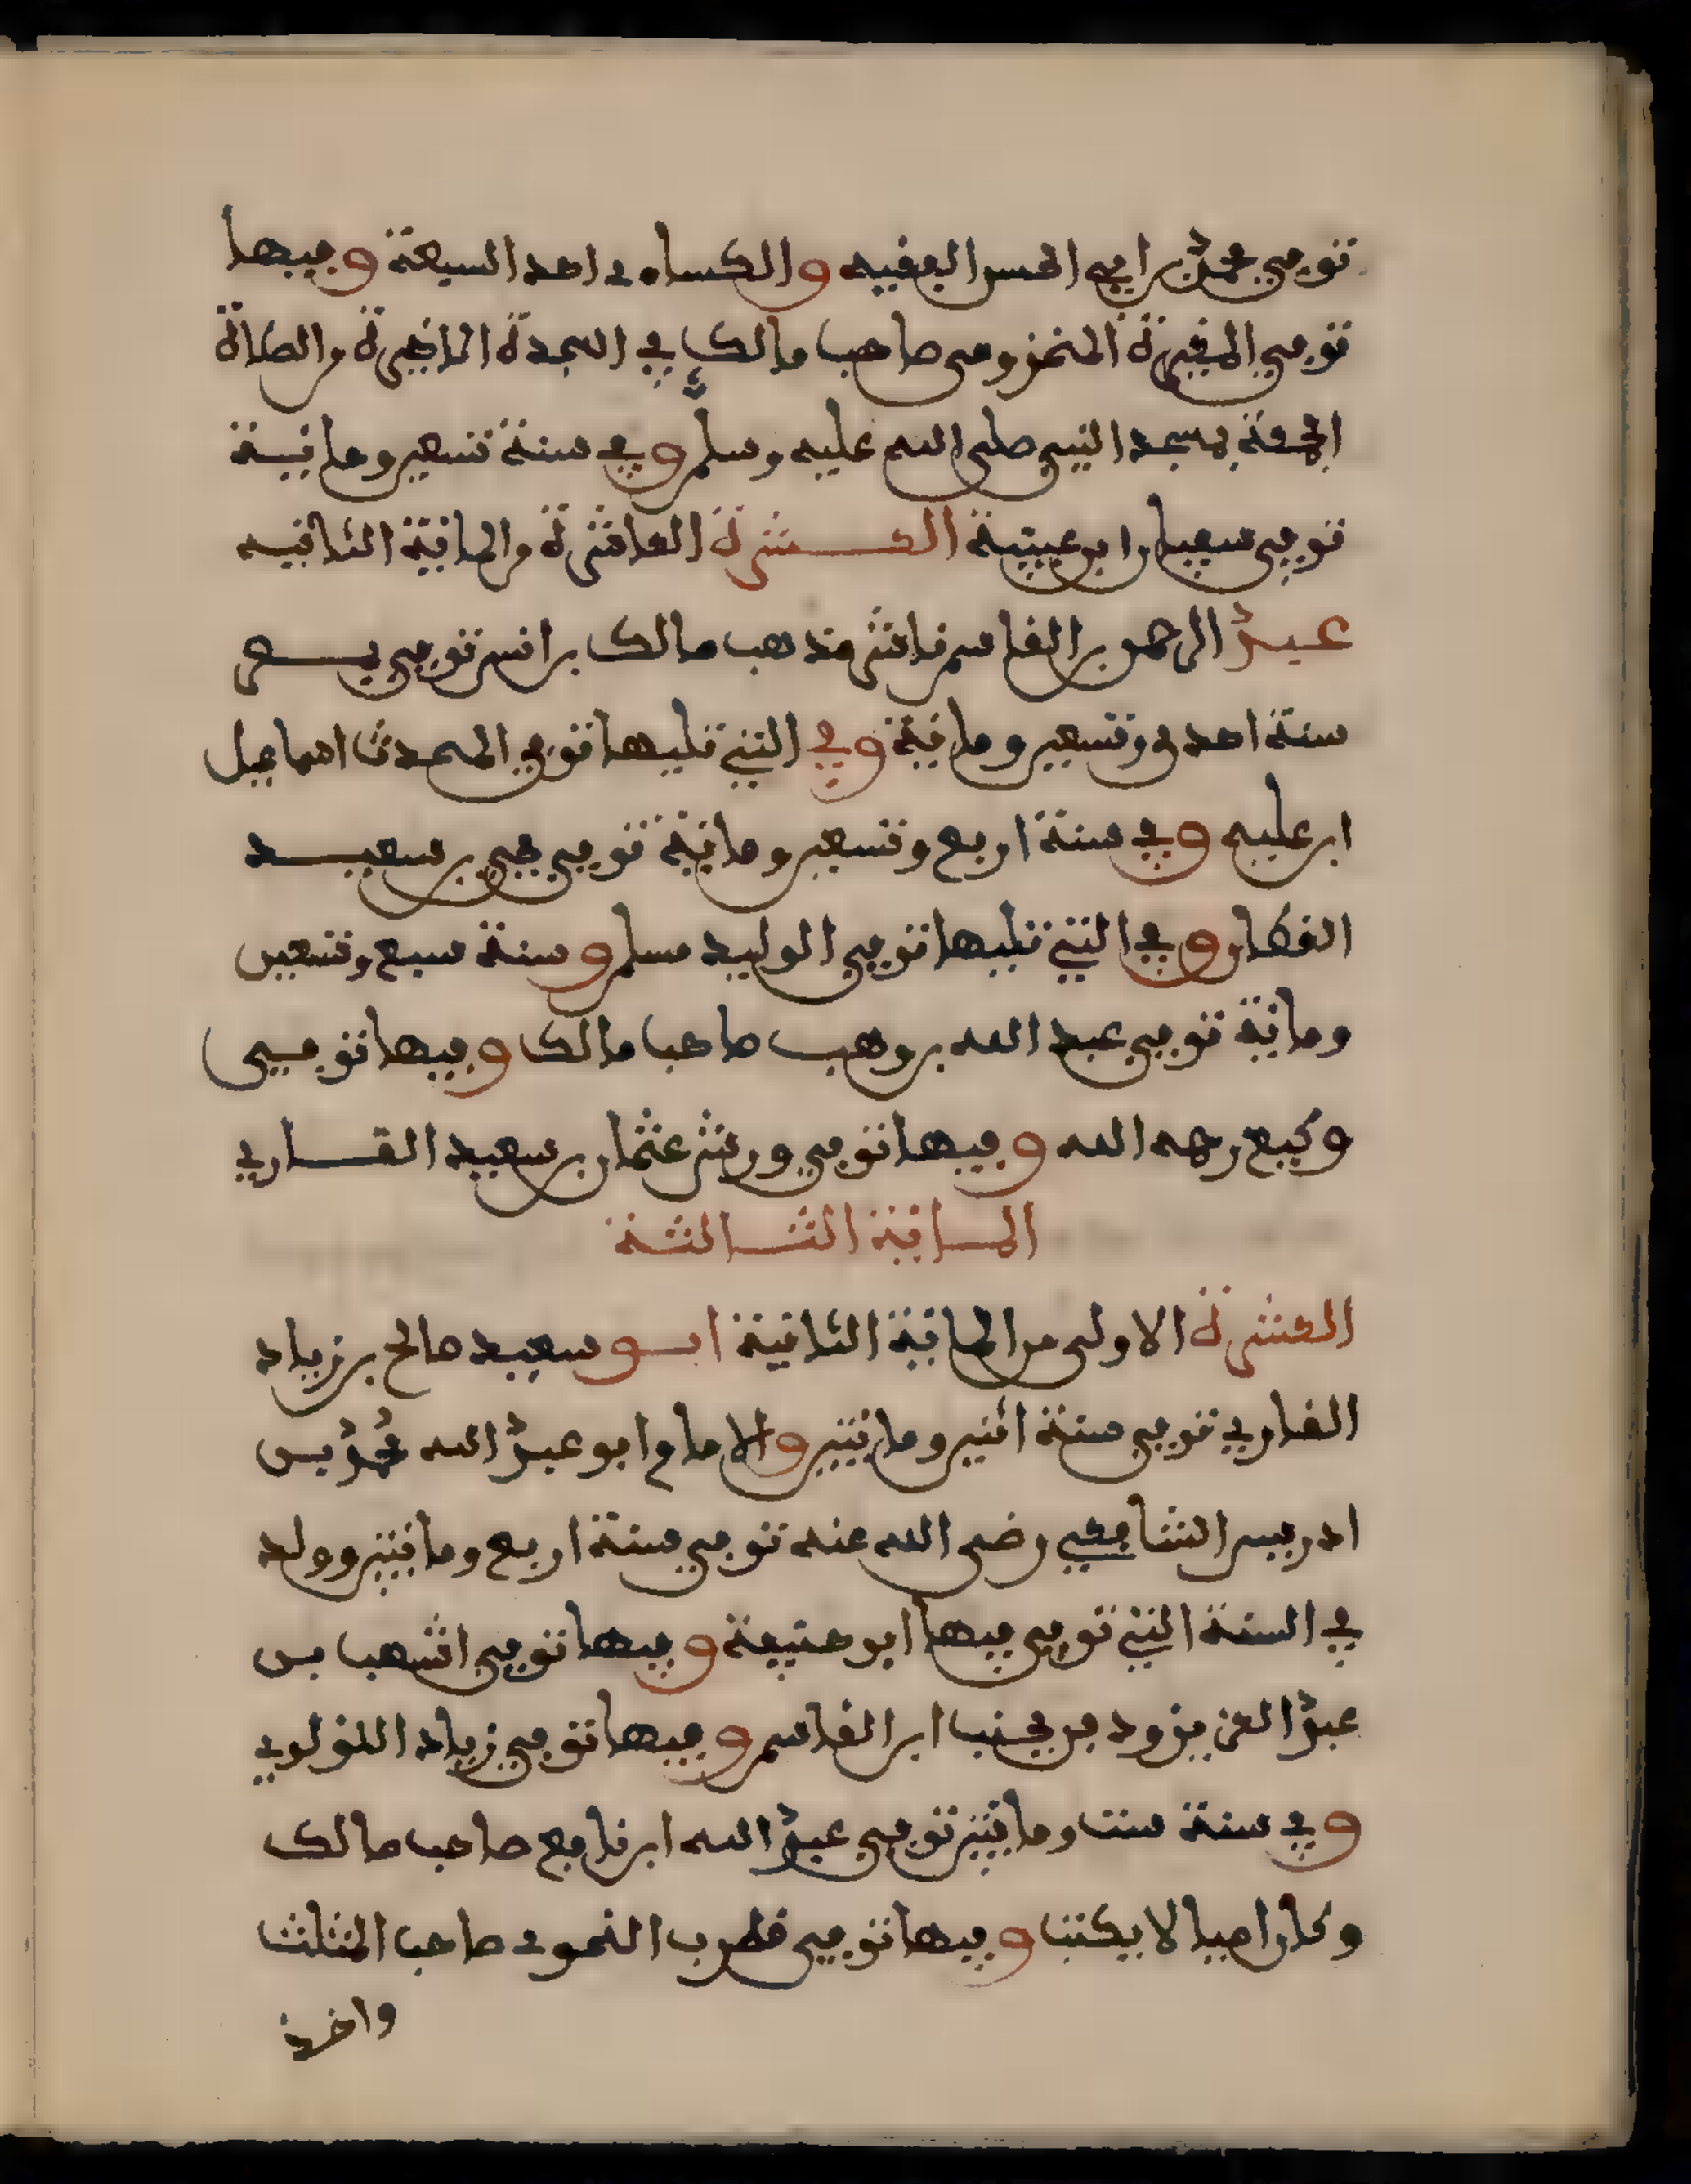 توفي محمد بن ابي الحسن الفقيه والكساءي احد السبعة وفيها
توفي المغيرة المخزومي صاحب مالك في العمدة الماضية والصلاة
الجمعة بمسجد النبي صلى الله عليه وسلم وفي سنة تسعين ومائة
توفي سعيان ابن عيينة العشرة العاشرة والمائة الثانيه
عبد الرحمن بن القاسم ناشر مذهب مالك بن انس توفي
سنة احدى وتسعين ومائة وفي التي تليها توفي المحدث اسماعيل
ابن علية وفي سنة اربع وتسعين ومائة توفي يحيى بن سعيد
القطان وفي التي تليها توفي الوليد مسلم وسنة سبع وتسعين
ومائة توفي عبد الله بن وهب صاحب مالك وفيها توفي
وكيع رحمه الله وفيها توفي ورش عثمان بن سعيد القاري
المائة الثالثة
العشرة الاولى من المائة الثانية ابو سعيد صالح بن زياد
القاري توفي سنة اثنين ومائتين والامام ابو عبد الله محمد بن
ادريس الشافعي رضي الله عنه توفي سنة اربع ومائتين وولد
في السنة التي توفي فيها ابو حنيفة وفيها توفي اشهب بن
عبد العزيز ودفن بجنب ابن القاسم وفيها توفي زياد اللؤلوي
وفي سنة ست ومائتين توفي عبد الله ابن نافع صاحب مالك
وكان اميا لا يكتب وفيها توفي قطرب النحوي صاحب المثلث
واخذ